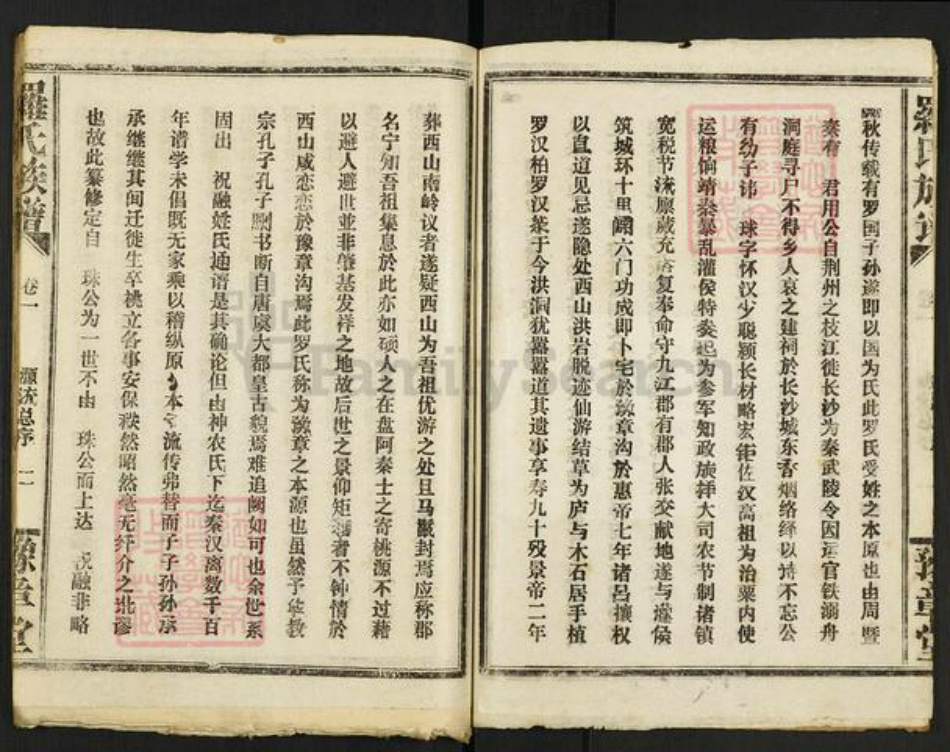 春秋传载有罗国子孙遂即以国为氏此罗氏受姓之本原也由周暨
秦有 君用公自荆州之枝江徙长沙为秦武陵令因运官铁溺舟
洞庭寻尸不得乡人哀之建祠於长沙城东香烟络绎以诗不忘公
有幼子讳 珠字怀汉少聪颖长材略宏钜佐汉高祖为治粟内使
运粮饷靖秦暴乱灌侯特奏起为参军知政旋拜大司农节制诸镇
宽税节流廪藏充 复奉命守九江郡有郡人张交献地遂与灌侯
筑城环十里阔六门功成即卜宅於豫章沟於惠帝七年诸吕攘权
以直道见忌遂隐处西山洪岩脱迹仙游结草为庐与木石居手植
罗汉柏罗汉菜于今洪洞犹嚣嚣道其遗事享寿九十殁景帝二年
葬西山南岭议者遂疑西山为吾祖优游之处且马鬣封焉应称郡
名宁知吾祖集息於此亦如硕人之在盘阿秦士之寄桃源不过藉
以避人避世並非肇基发祥之地故后世之景仰矩 者不钟情於
西山咸恋恋於豫章沟焉此罗氏称为豫章之本源也虽然予敏教
宗孔子孔子删书断自唐虞大都皇古貌焉难追阙如可也余世系
固出 祝融姓氏通谱是其确论但由神农氏下迄秦汉离数千百
年谱学未倡既无家乘以稽纵原 本 流传弗替而子子孙孙承
承继继其间迁徙生卒桃立各事安保秩然昭然毫无纤介之讹谬
也故此纂修定自 珠公为一世不由 珠公而上达 祝融非略
羅氏族譜
卷一
源流总序
二
豫章堂
羅氏族譜
豫章堂
FamilySearch